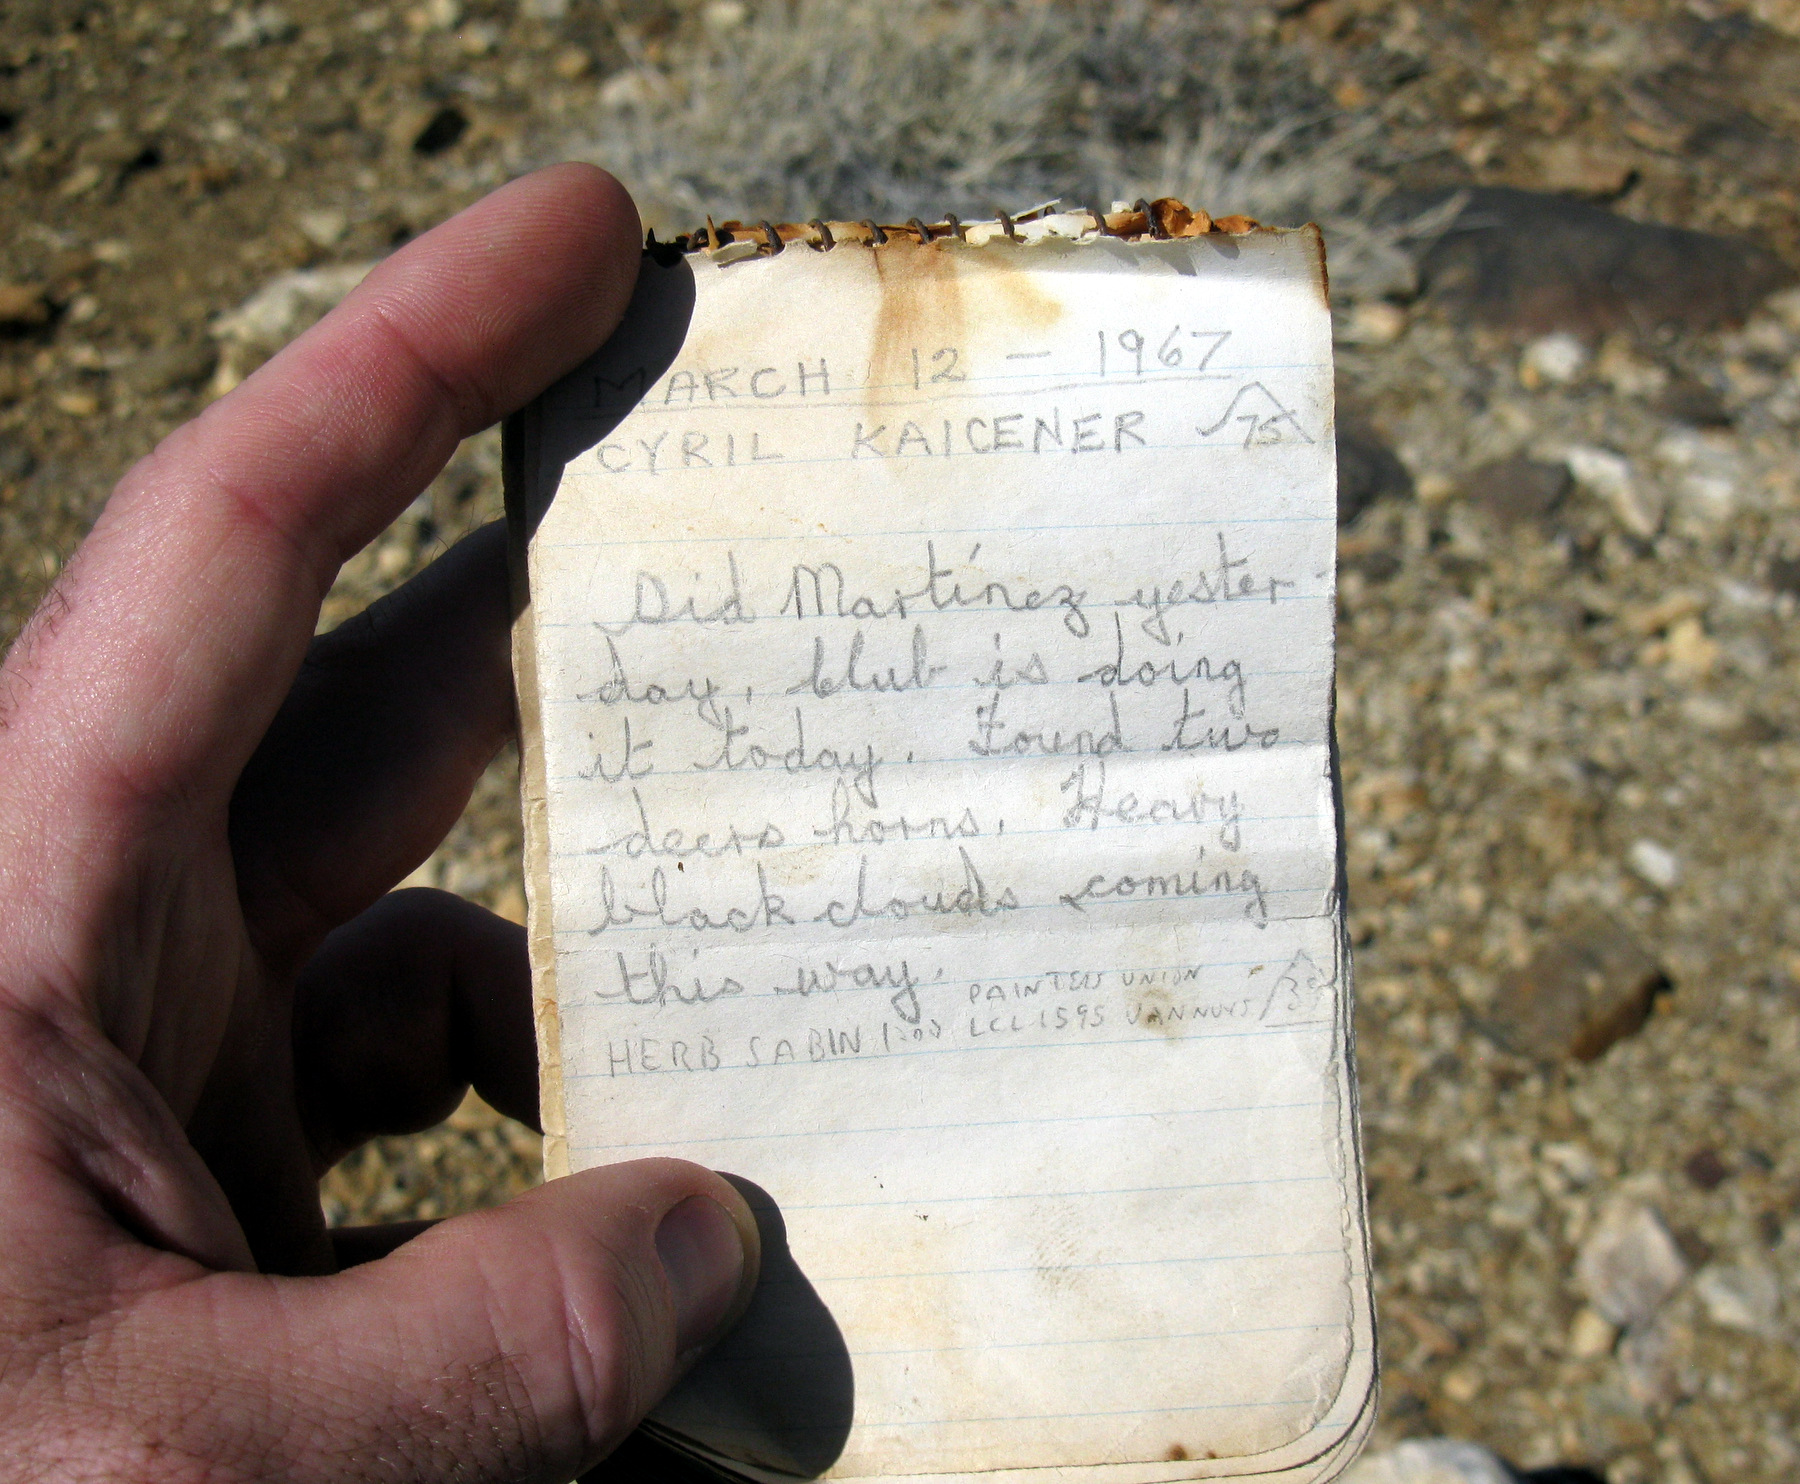 MARCH 12 — 1967
CYRIL KAICENER 75
Did Martínez yester-
day, club is doing
it today. Found two
deers horns. Heavy
black clouds coming
this way.
PAINTERS UNION
HERB SABIN 1:00 LCL 1595 VAN NUYS